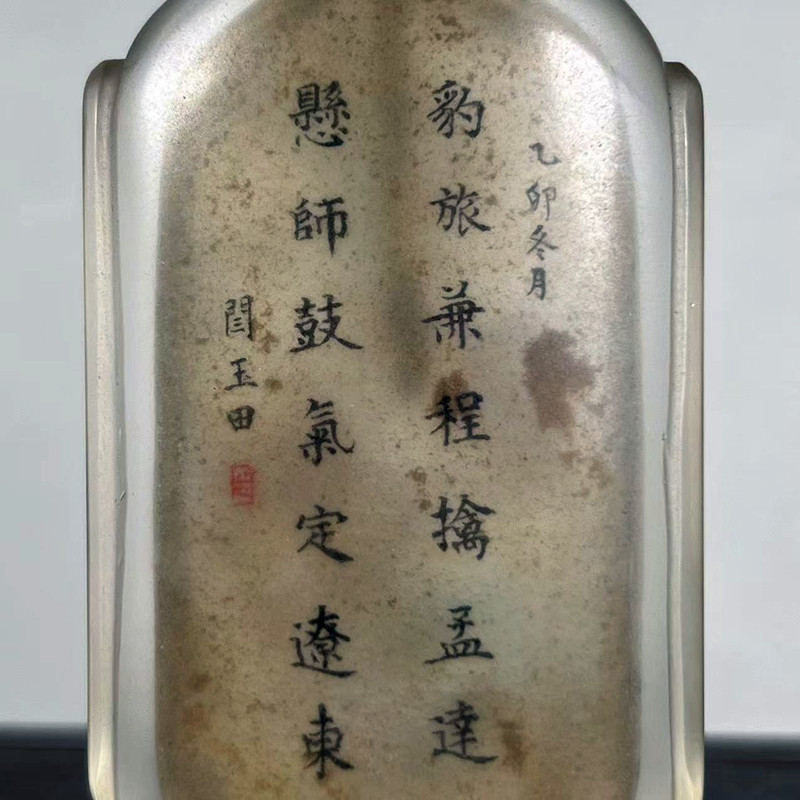 乙卯冬月
豹旅兼程擒孟達
懸師鼓氣定遼東
閆玉田